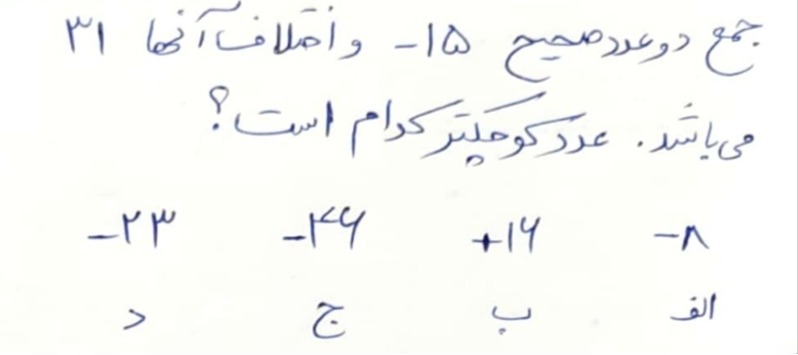 جمع دو عدد صحیح ۱۵- و اختلاف آنها ۳۱
می‌باشد. عدد کوچکتر کدام است؟
۸- +۱۶ ۴۶- ۲۳-
الف ب ج د